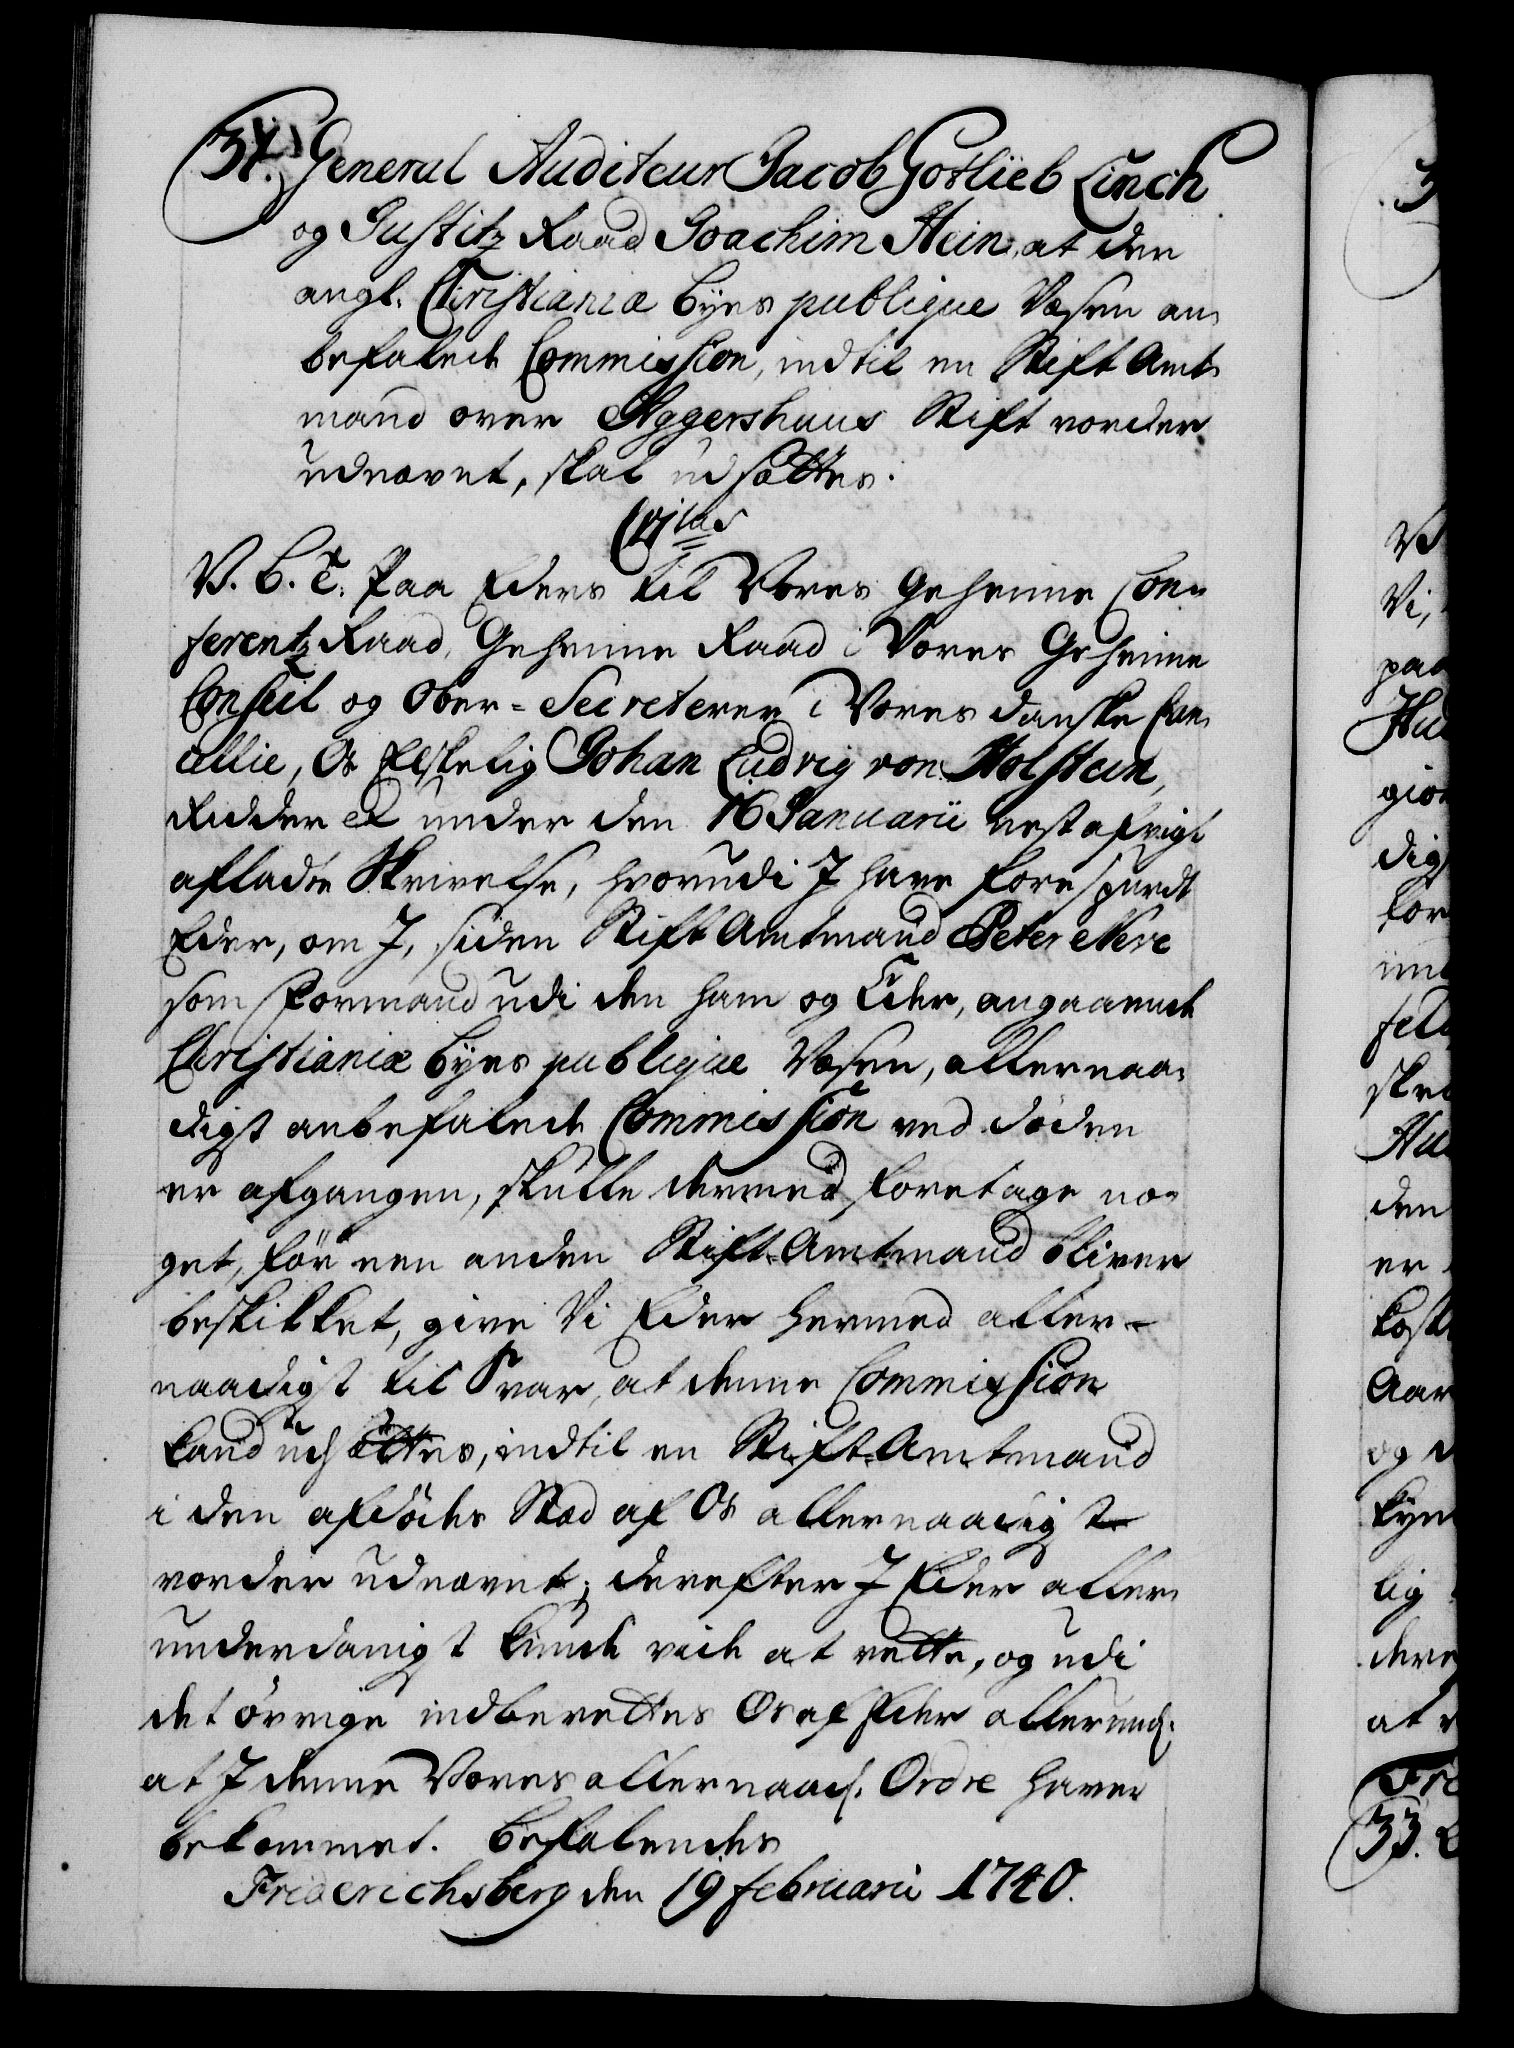 31. General Auditeur Jacob Gotlieb Linch
og Justitz Raad Joachim Hein, at den
angl. Christianiæ Byes publique Væsen an-
befalede Commission, indtil en Stift Amt-
mand over Aggershuus Stift vorder
udnævnt, skal udsættes.
C. 6tus
V. G. T. Paa Eders til Vores Geheime Con-
ferentz Raad, Geheime Raad i Vores Geheime
Conseil og Ober-Secreterer i Vores danske Can-
cellie, Os Elskelig Johan Ludvig von Holstein,
Ridder etc under den 16 Januarii nest afvigt
afladte Skrivelse, hvorudi I have forespurdt
Eder, om I, siden Stift Amtmand Peter Nere
som Formand udi den ham og Eder, angaaende
Christianiæ Byes publique Væsen, allernaa-
digst anbefalede Commission ved döden
er afgangen, skulle dermed foretage no-
get, för een anden Stift-Amtmand bliver
beskikket, give Vi Eder hermed aller-
naadigst til Svar, at denne Commission
kand udsættes, indtil en Stift-Amtmand
i den afdödes Stæd af Os allernaadigst
vorder udnævnt; derefter I Eder aller-
underdanigst kunde vide at rette, og udi
det övrige indberettes Os af Eder allerund.
at I denne Vores allernaad. Ordre haver
bekommet. Befalendes
Friderichsberg den 19 februarii 1740.
33.